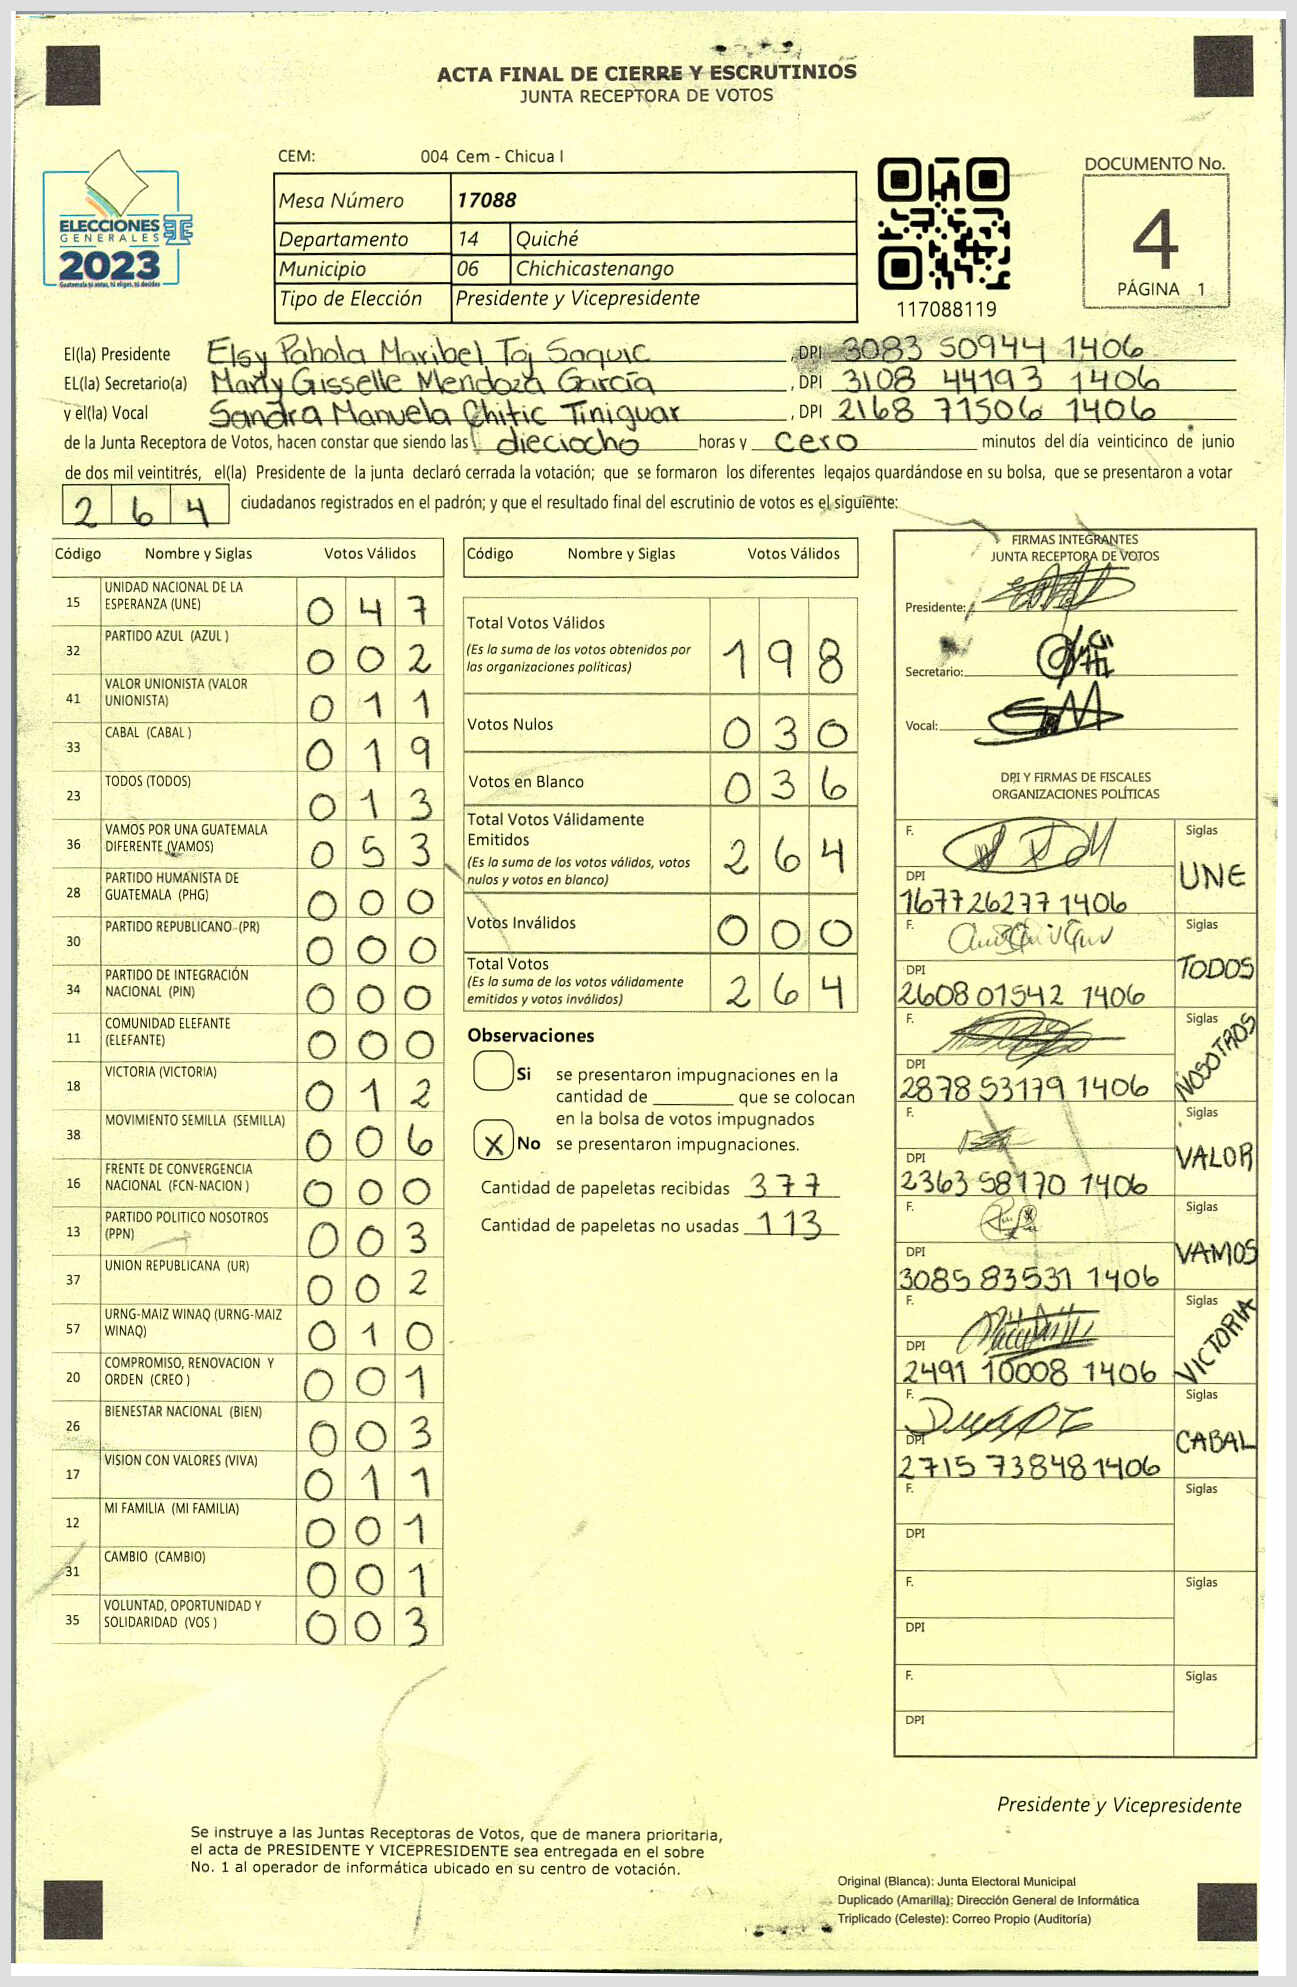 ACTA FINAL DE CIERRE Y ESCRUTINIOS
JUNTA RECEPTORA DE VOTOS
CEM: 004 Cem - Chicua I
DOCUMENTO No.
4
PÁGINA 1
ELECCIONES
GENERALES
2023
Guatemala tú votas, tú eliges, tú decides
Mesa Número 17088
Departamento 14 Quiché
Municipio 06 Chichicastenango
Tipo de Elección Presidente y Vicepresidente
117088119
El(la) Presidente Elsy Pahola Maribel Toj Saquic, DPI 3083 50944 1406
EL(la) Secretario(a) Marly Gisselle Mendoza García, DPI 3108 44193 1406
y el(la) Vocal Sandra Manuela Chitic Tiniguar, DPI 2168 71506 1406
de la Junta Receptora de Votos, hacen constar que siendo las dieciocho horas y cero minutos del día veinticinco de junio
de dos mil veintitrés, el(la) Presidente de la junta declaró cerrada la votación; que se formaron los diferentes legajos guardándose en su bolsa, que se presentaron a votar
264 ciudadanos registrados en el padrón; y que el resultado final del escrutinio de votos es el siguiente:
Código Nombre y Siglas Votos Válidos
15 UNIDAD NACIONAL DE LA ESPERANZA (UNE) 047
32 PARTIDO AZUL (AZUL ) 002
41 VALOR UNIONISTA (VALOR UNIONISTA) 011
33 CABAL (CABAL ) 019
23 TODOS (TODOS) 013
36 VAMOS POR UNA GUATEMALA DIFERENTE (VAMOS) 053
28 PARTIDO HUMANISTA DE GUATEMALA (PHG) 000
30 PARTIDO REPUBLICANO (PR) 000
34 PARTIDO DE INTEGRACIÓN NACIONAL (PIN) 000
11 COMUNIDAD ELEFANTE (ELEFANTE) 000
18 VICTORIA (VICTORIA) 012
38 MOVIMIENTO SEMILLA (SEMILLA) 006
16 FRENTE DE CONVERGENCIA NACIONAL (FCN-NACION ) 000
13 PARTIDO POLITICO NOSOTROS (PPN) 003
37 UNION REPUBLICANA (UR) 002
57 URNG-MAIZ WINAQ (URNG-MAIZ WINAQ) 010
20 COMPROMISO, RENOVACION Y ORDEN (CREO ) 001
26 BIENESTAR NACIONAL (BIEN) 003
17 VISION CON VALORES (VIVA) 011
12 MI FAMILIA (MI FAMILIA) 001
31 CAMBIO (CAMBIO) 001
35 VOLUNTAD, OPORTUNIDAD Y SOLIDARIDAD (VOS ) 003
Código Nombre y Siglas Votos Válidos
Total Votos Válidos 198
(Es la suma de los votos obtenidos por
las organizaciones políticas)
Votos Nulos 030
Votos en Blanco 036
Total Votos Válidamente
Emitidos 264
(Es la suma de los votos válidos, votos
nulos y votos en blanco)
Votos Inválidos 000
Total Votos 264
(Es la suma de los votos válidamente
emitidos y votos inválidos)
Observaciones
Si se presentaron impugnaciones en la
cantidad de ________ que se colocan
en la bolsa de votos impugnados
X No se presentaron impugnaciones.
Cantidad de papeletas recibidas 377
Cantidad de papeletas no usadas 113
FIRMAS INTEGRANTES
JUNTA RECEPTORA DE VOTOS
Presidente:
Secretario:
Vocal:
DPI Y FIRMAS DE FISCALES
ORGANIZACIONES POLÍTICAS
F. Siglas
DPI UNE
1677 26277 1406
F. Siglas
DPI TODOS
2608 01542 1406
F. Siglas
DPI NOSOTROS
2878 53179 1406
F. Siglas
DPI VALOR
2363 58170 1406
F. Siglas
DPI VAMOS
3085 83531 1406
F. Siglas
DPI VICTORIA
2491 10008 1406
F. Siglas
DPI CABAL
2715 73848 1406
F. Siglas
DPI
F. Siglas
DPI
F. Siglas
DPI
Presidente y Vicepresidente
Se instruye a las Juntas Receptoras de Votos, que de manera prioritaria,
el acta de PRESIDENTE Y VICEPRESIDENTE sea entregada en el sobre
No. 1 al operador de informática ubicado en su centro de votación.
Original (Blanca): Junta Electoral Municipal
Duplicado (Amarilla): Dirección General de Informática
Triplicado (Celeste): Correo Propio (Auditoría)